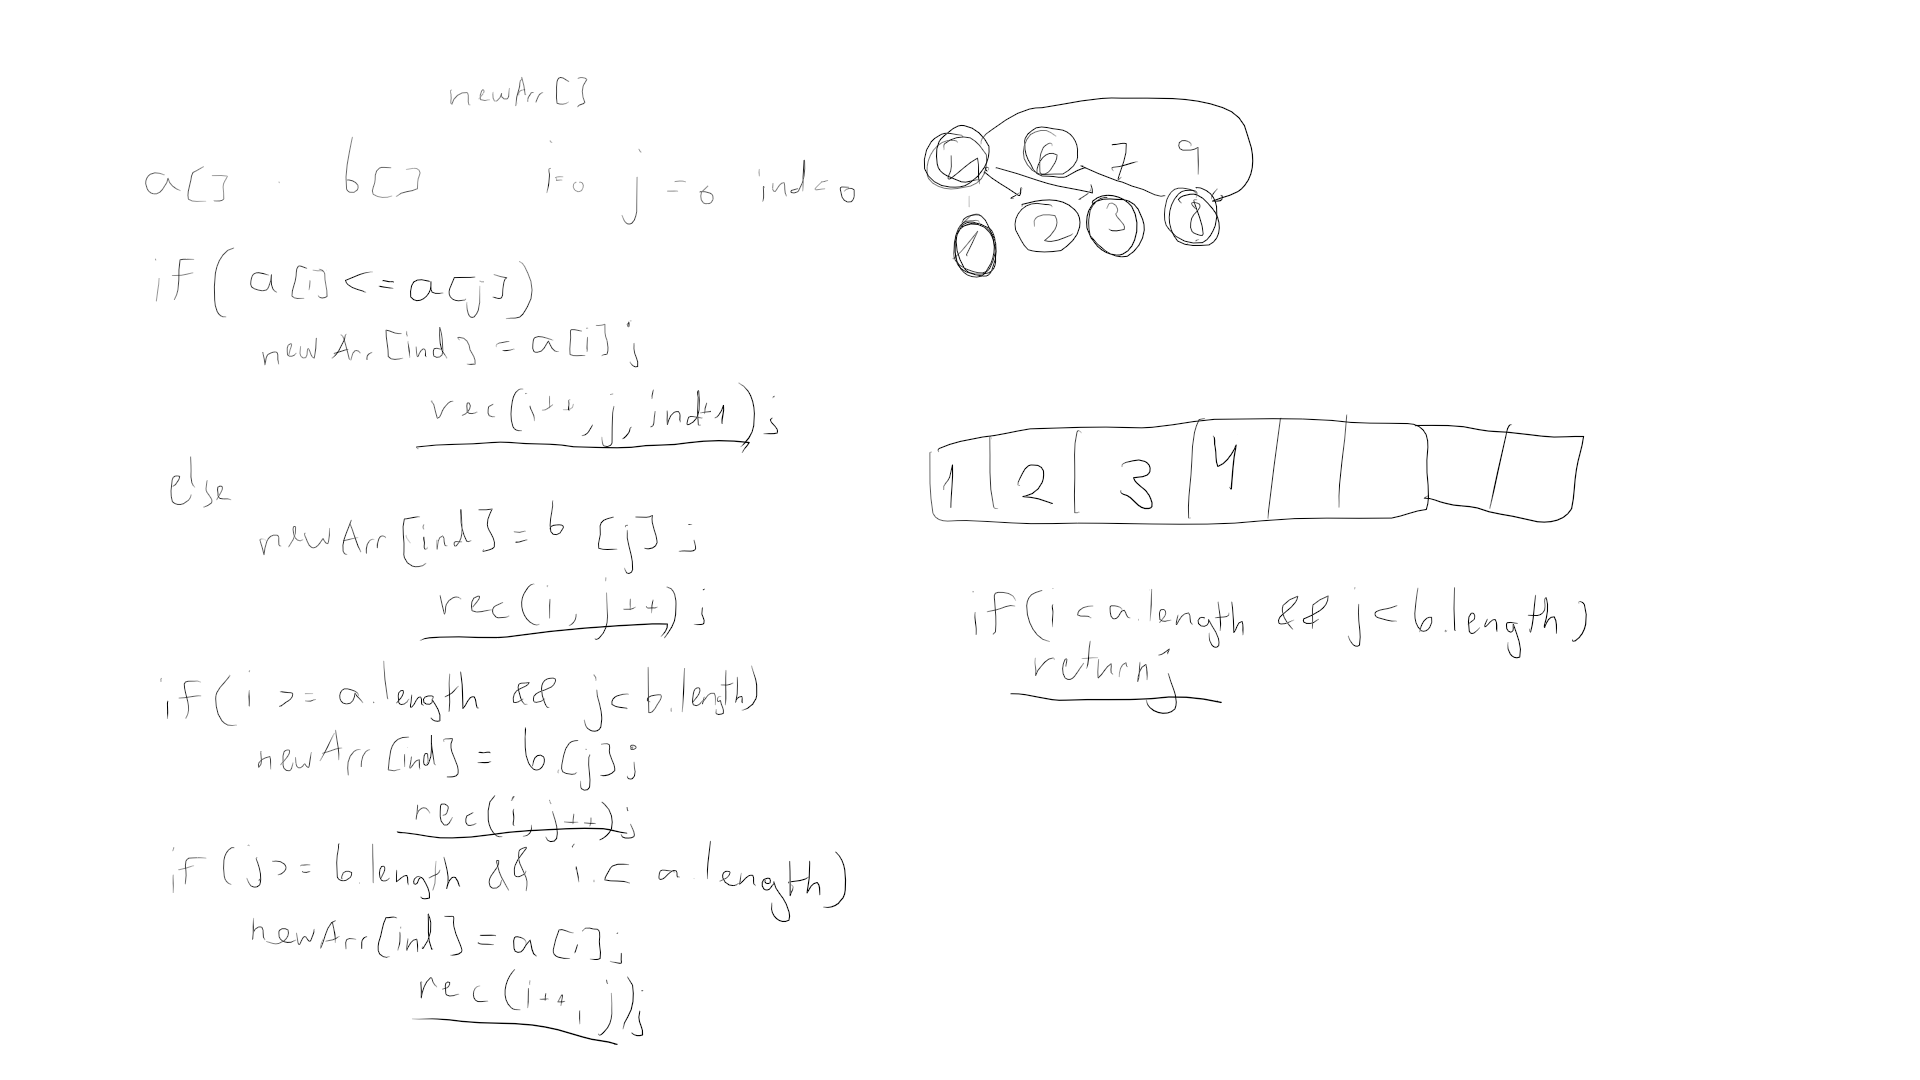 newArr[]
a[] b[] i=0 j=0 ind=0
if(a[i]<=a[j])
newArr[ind]=a[i];
rec(i++,j,ind+1);
else
newArr[ind]=b[j];
rec(i,j++);
if(i>=a.length && j<b.length)
newArr[ind]=b[j];
rec(i,j++);
if(j>=b.length && i<a.length)
newArr[ind]=a[i];
rec(i++,j);
6 7 9
1 2 3 8
1 2 3 4
if(i<a.length && j<b.length)
return;